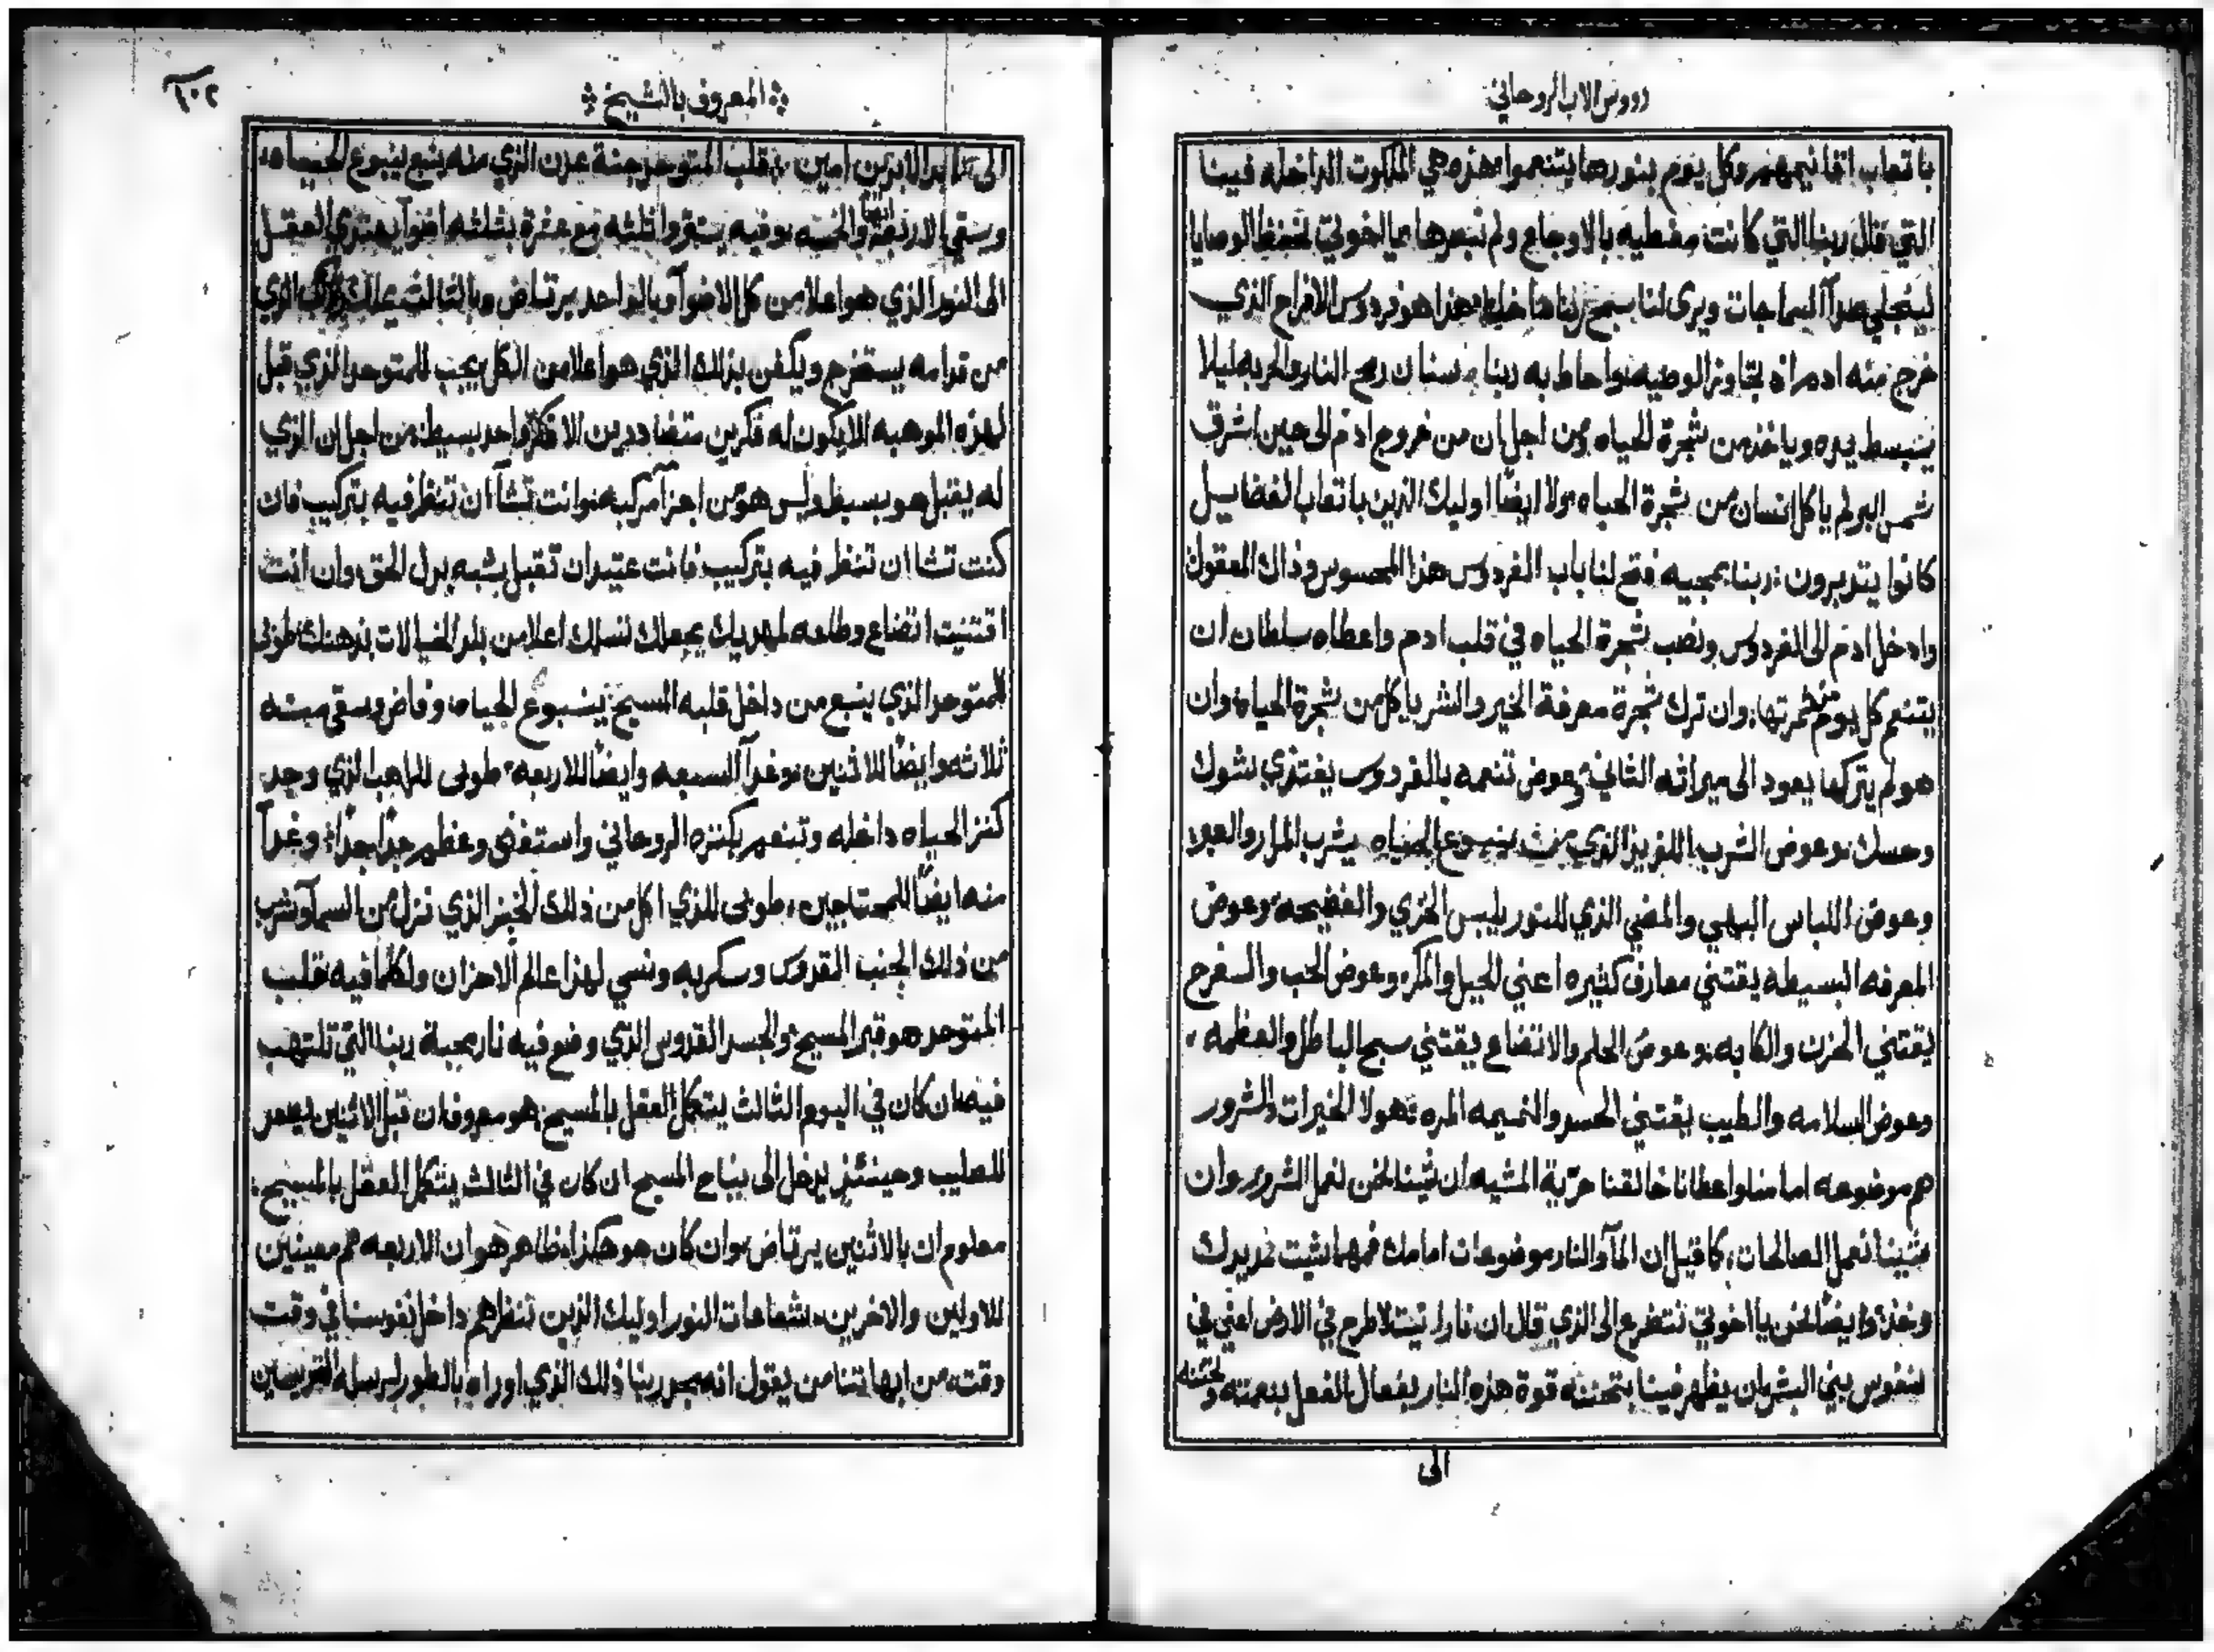 رووس الاب الروحاني
باتعاب اتفانيمهم وكل يوم بنورها يتنعموا هذه هي الملكوت الداخله فينا
التي قال ربنا التي كانت مغطيه بالاوجاع ولم نبصرها يا اخوتي لنحفظ الوصايا
لينجلي صدآ السماجات ويرى لنا سبح ربنا داخلنا هذا هو فردوس الافراح الذي
خرج منه ادم اذ تجاوز الوصيه واحاط به ربنا سنان رمح النار والحربه ليلا
ينبسط يده وياخذ من شجرة الحياه ومن اجل ان من خروج ادم الى حين اشرق
شمس البر لم ياكل انسان من شجرة الحياه ولا ايضًا اوليك الذين باتعاب الفضايل
كانوا يتدبرون ربنا بمجيه فتح لنا باب الفردوس هذا المحسوس وذاك المعقول
وادخل ادم الى الفردوس ونصب شجرة الحياه في قلب ادم واعطاه سلطان ان
يتنعم كل يوم من ثمرتها وان ترك شجرة معرفة الخير والشر ياكل من شجرة الحياه وان
هو لم يتركها يعود الى ميراثه الثاني وعوض تنعمه بالفردوس يغتذي بشوك
وحسك وعوض الشرب اللذيذ الذي من ينبوع الحياه يشرب المرار والعبور
وعوض اللباس البهي والمضي الذي للنور يلبس الخزي والفضيحه وعوض
المعرفه البسيطه يقتني معارف كثيره اعني الحيل والمكر وعوض الحب والفرح
يقتني الحزن والكابه وعوض الحلم والاتضاع يقتني سبح الباطل والعظمه
وعوض السلامه والطيب يقتني الحسد والنميمه المره هولا الخيرات والشرور
هم موضوعه امامنا واعطانا خالقنا حرّية المشيه ان شينا نحن نعمل الشرور وان
شينا نعمل الصالحات كما قيل ان المآ والنار موضوعات امامك فمهما شيت مد يدك
وخذ وايضًا نحن يا اخوتي نتضرع الى الذي قال ان نارا تيت لاطرح في الارض اعني في
نفوس بني البشر ان يظهر فينا بتحننه قوة هذه النار بفعال الفعل بنعمته وتحننه
الى
المعروف بالشيخ
١٠٢
الى ابد الابدين امين قلب المتوحد جنة عدن الذي منه ينبع ينبوع الحياه
وسقي الاربعة انهار والخمسه وفيه يستقروا ثلثه مع عشرة بثلثه اضوآ يهتدي العقل
الى النور الذي هو اعلا من كل الاضوآ وبالواحد يرتاض وبالثالث الذي
من قدامه يستخرج ويكفن بذلك الذي هو اعلا من الكل يجب للمتوحد الذي قبل
لهذه الموهبه الا يكون له فكرين متضاددين الا فكر واحد بسيط من اجل ان الذي
له يقبل هو بسيط وليس هو من اجزآ مركبه وانت تشآ ان تنظر فيه بتركيب فان
كنت تشا ان تنظر فيه بتركيب فانت عتيد ان تقبل بشبه بدل الحق وان انت
اقتنيت اتضاع وطاعه لمهديك يجعلك تسلك اعلا من بلد الخيالات بذهنك طوبى
للمتوحد الذي ينبع من داخل قلبه المسيح ينبوع الحياه وفاض وسقى منه
ثلاثه وايضًا للاثنين وغدآ السبعه وايضًا للاربعه طوبى للراهب الذي وجد
كنز الحياه داخله وتنعم بكنزه الروحاني واستغنى وعظم جدًا جدًا وغدآ
منه ايضًا للمحتاجين طوبى للذي اكل من ذلك الخبز الذي نزل من السمآ وشرب
من ذلك الجنب المقدوس وسكر به ونسي لهذا عالم الاحزان ولكلما فيه قلب
المتوحد هو قبر المسيح والجسد القدوس الذي وضع فيه نار محبة ربنا التي تلتهب
فيه ان كان في اليوم الثالث يتكمل العقل بالمسيح هو معروف ان قبل الاثنين يصعد
للصليب وحينئذ يدخل الى يناح المسيح ان كان في الثالث يتكمل العقل بالمسيح
معلوم ان بالاثنين يرتاض وان كان هو هكذا ظاهر هو ان الاربعه هم معينين
للاولين والاخرين شعاعات النور اوليك الذين تنظرهم داخل نفوسنا في وقت
وقت من ابهاتنا من يقول انه مجد ربنا ذلك الذي اوراه بالطور لرسله القديسين